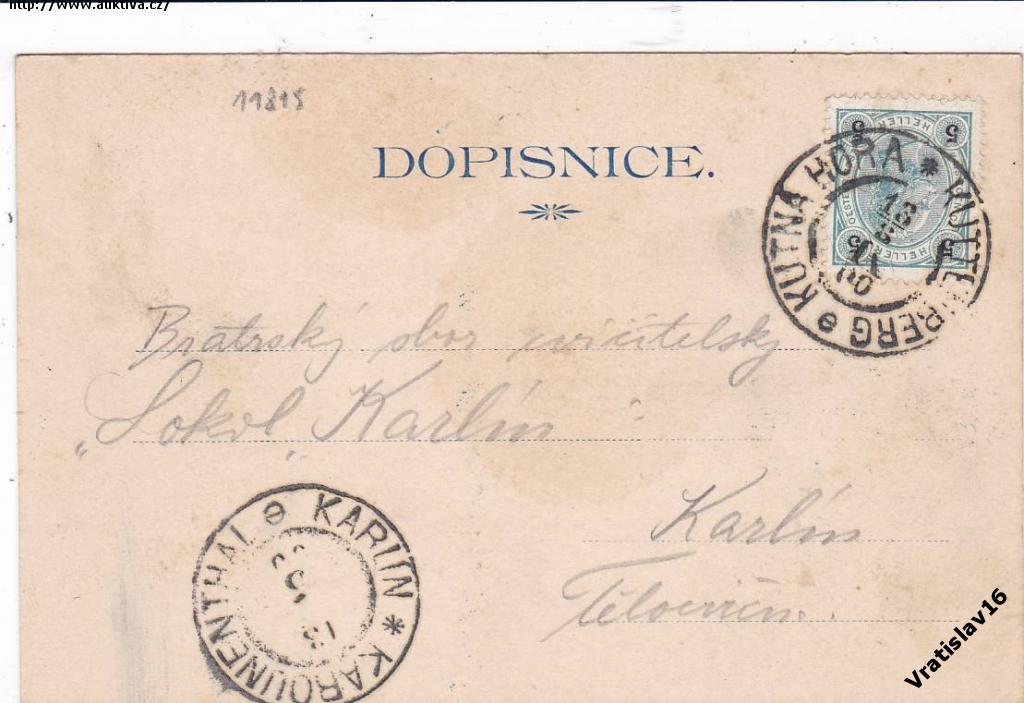 http://www.auktiva.cz/
11815
DOPISNICE.
5 HELLER 5
KUTNÁ HORA * KUTTENBERG
13
Bratrský sbor cvičitelský
„Sokol" Karlín
Karlín
Tělocvična.
KARLÍN * KAROLINENTHAL
13
Vratislav16